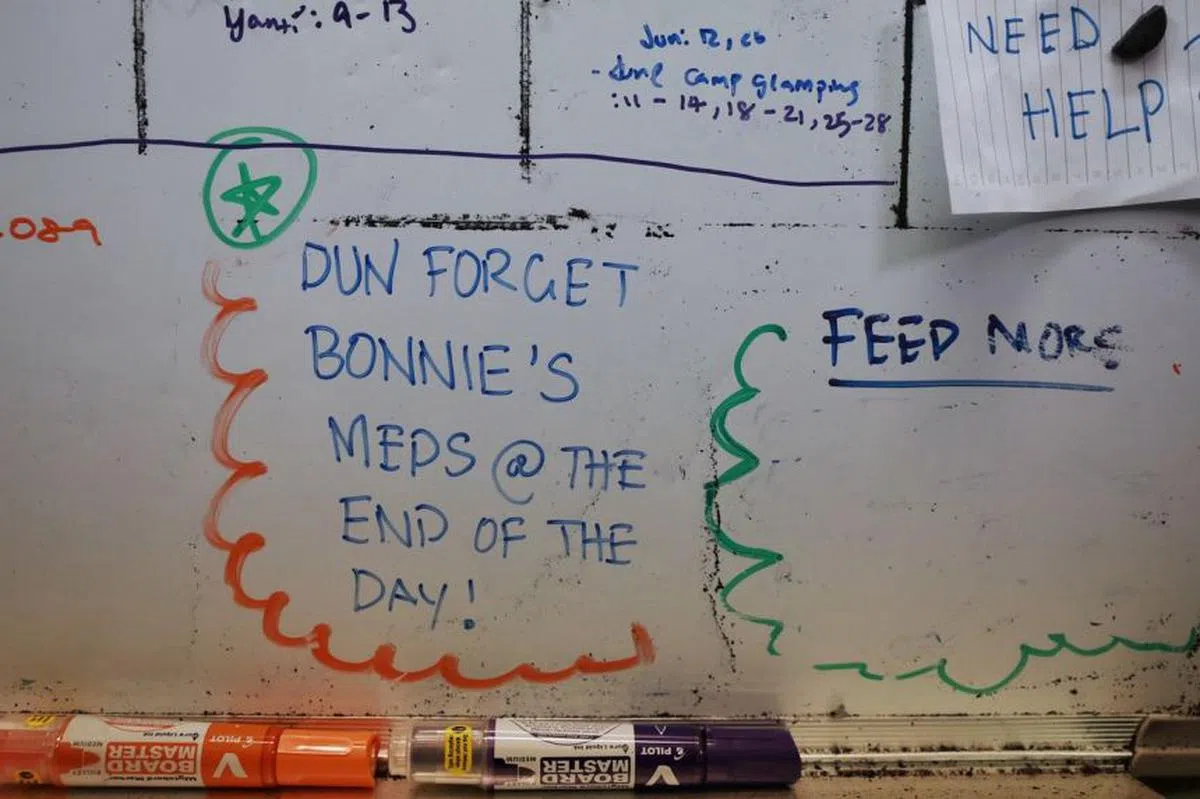 Yanti: 9-13
Jun: 12, 26
- June camp glamping
: 11 - 14, 18 - 21, 25-28
NEED
HELP
089
DUN FORGET
BONNIE'S
MEDS @ THE
END OF THE
DAY!
FEED MORE
PILOT
BOARD
MASTER
MEDIUM
BULLET
PILOT
BOARD
MASTER
MEDIUM